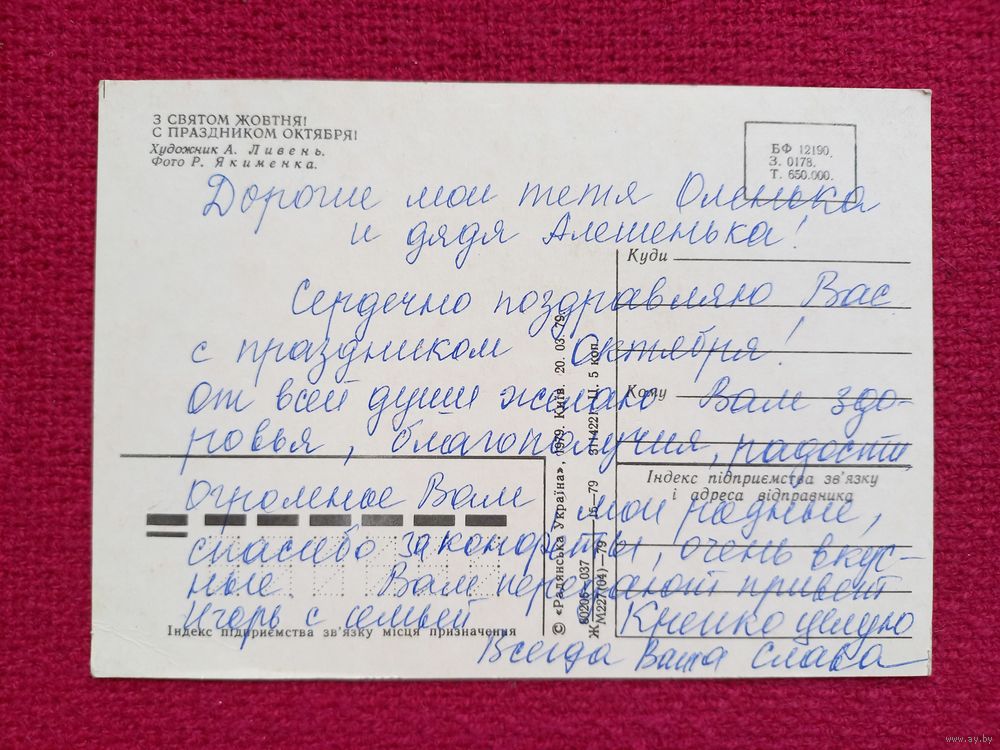 З СВЯТОМ ЖОВТНЯ!
С ПРАЗДНИКОМ ОКТЯБРЯ!
Художник А. Ливень.
Фото Р. Якименка.
БФ 12190.
З. 0178.
Т. 650.000.
Дорогие мои тетя Оленька
и дядя Алешенька!
Куди
Сердечно поздравляю Вас
с праздником Октября!
Кому
От всей души желаю Вам здо-
ровья, благополучия, радости,
Індекс підприємства зв'язку
і адреса відправника
огромное Вам мои родные,
спасибо за конфеты, очень вкус-
ные. Вам передают привет
Игорь с семьей. Крепко целую
Індекс підприємства зв'язку місця призначення
Всегда Ваша Слава
© «Радянська Україна», 1979. Київ. 20. 03. 79.
Ж 60206—037 М227(04)—79 15—79 3114221 Ц. 5 коп.
www.ay.by